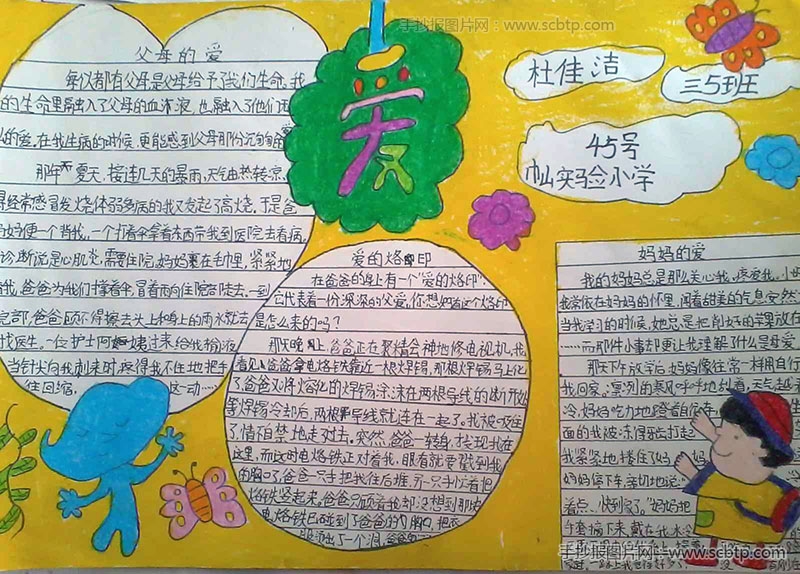 手抄报图片网：www.scbtp.com
父母的爱
每个人都有父母是父母给予了我们生命。我
的生命里融入了父母的血液，也融入了他们
的爱，在我生病的时候，更能感到父母那份
那年夏天，接连几天的暴雨，天气由热转凉，
经常感冒发烧体弱多病的我又发起了高烧，于是爸
妈便一个背我，一个打着伞拿着东西带我到医院去看病，
诊断说是心肌炎，需要住院，妈妈裹在毛里，紧紧地
我，爸爸为我们撑着伞冒着雨向住院部走去，一到
院部，爸爸顾不得擦去头上和身上的雨水就去
找医生，一位护士阿姨过来给我输液
当针尖向我刺来时，疼得我不住地把手
往回缩，
这一动……
爱
杜佳洁
三5班
45号
实验小学
爱的烙印
在爸爸的身上有一个"爱的烙印"，
它代表着一份深深的父爱，你想知道这个烙印
是怎么来的吗？
那天晚上，爸爸正在聚精会神地修电视机，我
看见爸爸拿电烙铁靠近一根焊锡，那根焊锡马上化
了，爸爸又将熔化的焊锡涂沫在两根导线的断开处
等焊锡冷却后，两根导线就连在一起了，我被吸住
了，情不自禁地走过去，突然，爸爸一转身，发现我在
这里，而这时电烙铁正对着我，眼看就要戳到我
的胸口了，爸爸一只手把我往后推，另一只手忙着把
烙铁竖起来，爸爸只顾着我却没想到那
电烙铁已碰到了爸爸的胸口，把衣
服烫出了一个洞，爸爸
妈妈的爱
我的妈妈总是那么关心我，疼爱我，小
我依偎在妈妈的怀里，闻着甜美的气息安然
当我学习的时候，她总是把削好的苹果放在
……而那件小事却更让我理解了什么是母爱
那天下午放学后妈妈像往常一样用自行
我回家，凛冽的寒风呼呼地刮着，天气越
冷，妈妈吃力地蹬着自行车
面的我被冻得牙齿打起
我紧紧地搂住了妈妈
妈妈停下车亲切地说
着点，快到家了。"妈妈把
手套摘下来，戴在我
手抄报图片网：www.scbtp.com